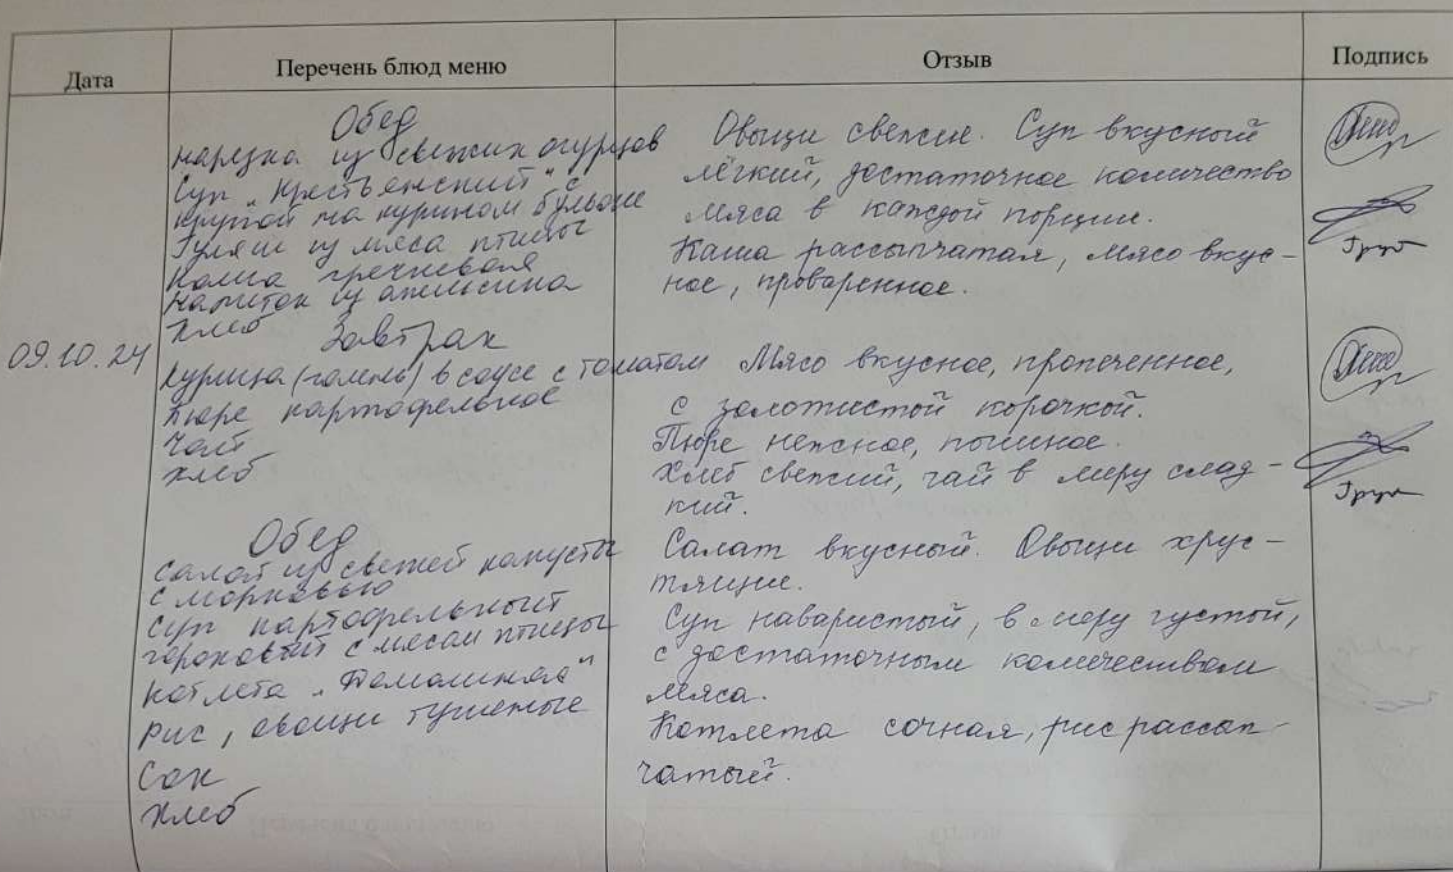 Дата Перечень блюд меню Отзыв Подпись
Обед
нарезка из свежих огурцов
Суп „Крестьянский" с
крупой на курином бульоне
Гуляш из мяса птицы
Каша гречневая
напиток из апельсина
хлеб
Овощи свежие. Суп вкусный
лёгкий, достаточное количество
мяса в каждой порции.
Каша рассыпчатая, мясо вкус-
ное, проваренное.
09.10.24
Завтрак
курица (голень) в соусе с томатом
пюре картофельное
чай
хлеб
Мясо вкусное, пропеченное,
с золотистой корочкой.
Пюре нежное, пышное.
Хлеб свежий, чай в меру слад-
кий.
Обед
Салат из свежей капусты
с морковью
суп картофельный
гороховый с мясом птицы
котлета „Домашняя"
рис, овощи тушеные
Сок
хлеб
Салат вкусный. Овощи хрус-
тящие.
Суп наваристый, в меру густой,
с достаточным количеством
мяса.
Котлета сочная, рис рассып
чатый.